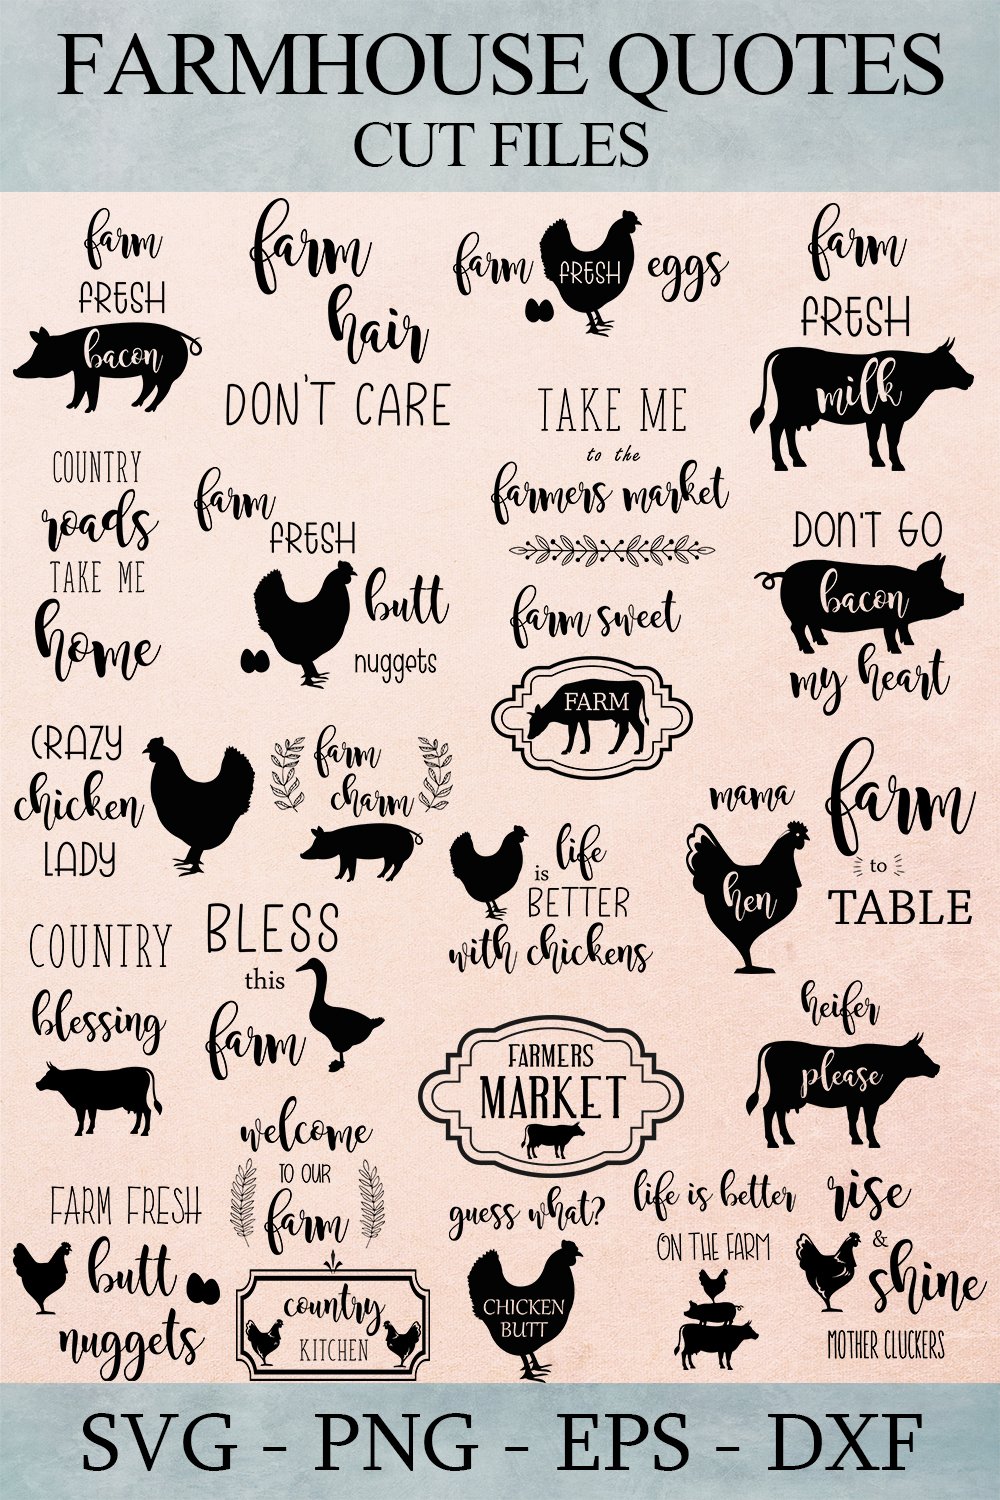 FARMHOUSE QUOTES
CUT FILES
farm
FRESH
bacon
farm
hair
DON'T CARE
farm FRESH eggs
farm
FRESH
milk
COUNTRY
roads
TAKE ME
home
farm
FRESH
butt
nuggets
TAKE ME
to the
farmers market
farm sweet
FARM
DON'T GO
bacon
my heart
CRAZY
chicken
LADY
farm
charm
life
is
BETTER
with chickens
mama
hen
farm
to
TABLE
COUNTRY
blessing
BLESS
this
farm
FARMERS
MARKET
heifer
please
FARM FRESH
butt
nuggets
welcome
TO OUR
farm
country
KITCHEN
guess what?
CHICKEN
BUTT
life is better
ON THE FARM
rise
&
shine
MOTHER CLUCKERS
SVG - PNG - EPS - DXF